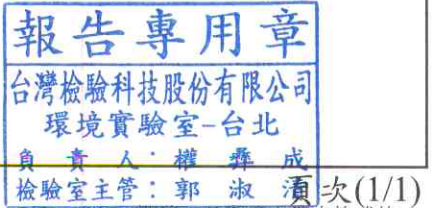 報告專用章
台灣檢驗科技股份有限公司
環境實驗室-台北
負責人:權彝成
檢驗室主管:郭淑清
頁次(1/1)